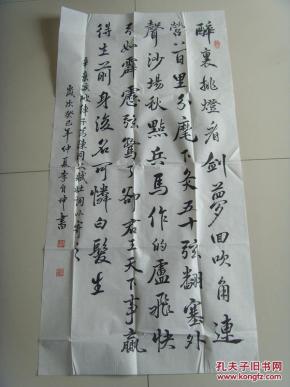 醉裏挑燈看劍夢回吹角連
營八百里分麾下炙五十弦翻塞外
聲沙場秋點兵馬作的盧飛快
弓如霹靂弦驚了卻君王天下事贏
得生前身後名可憐白髮生
辛棄疾破陣子為陳同甫賦壯詞以寄之
歲次癸巳年仲夏李自坤書